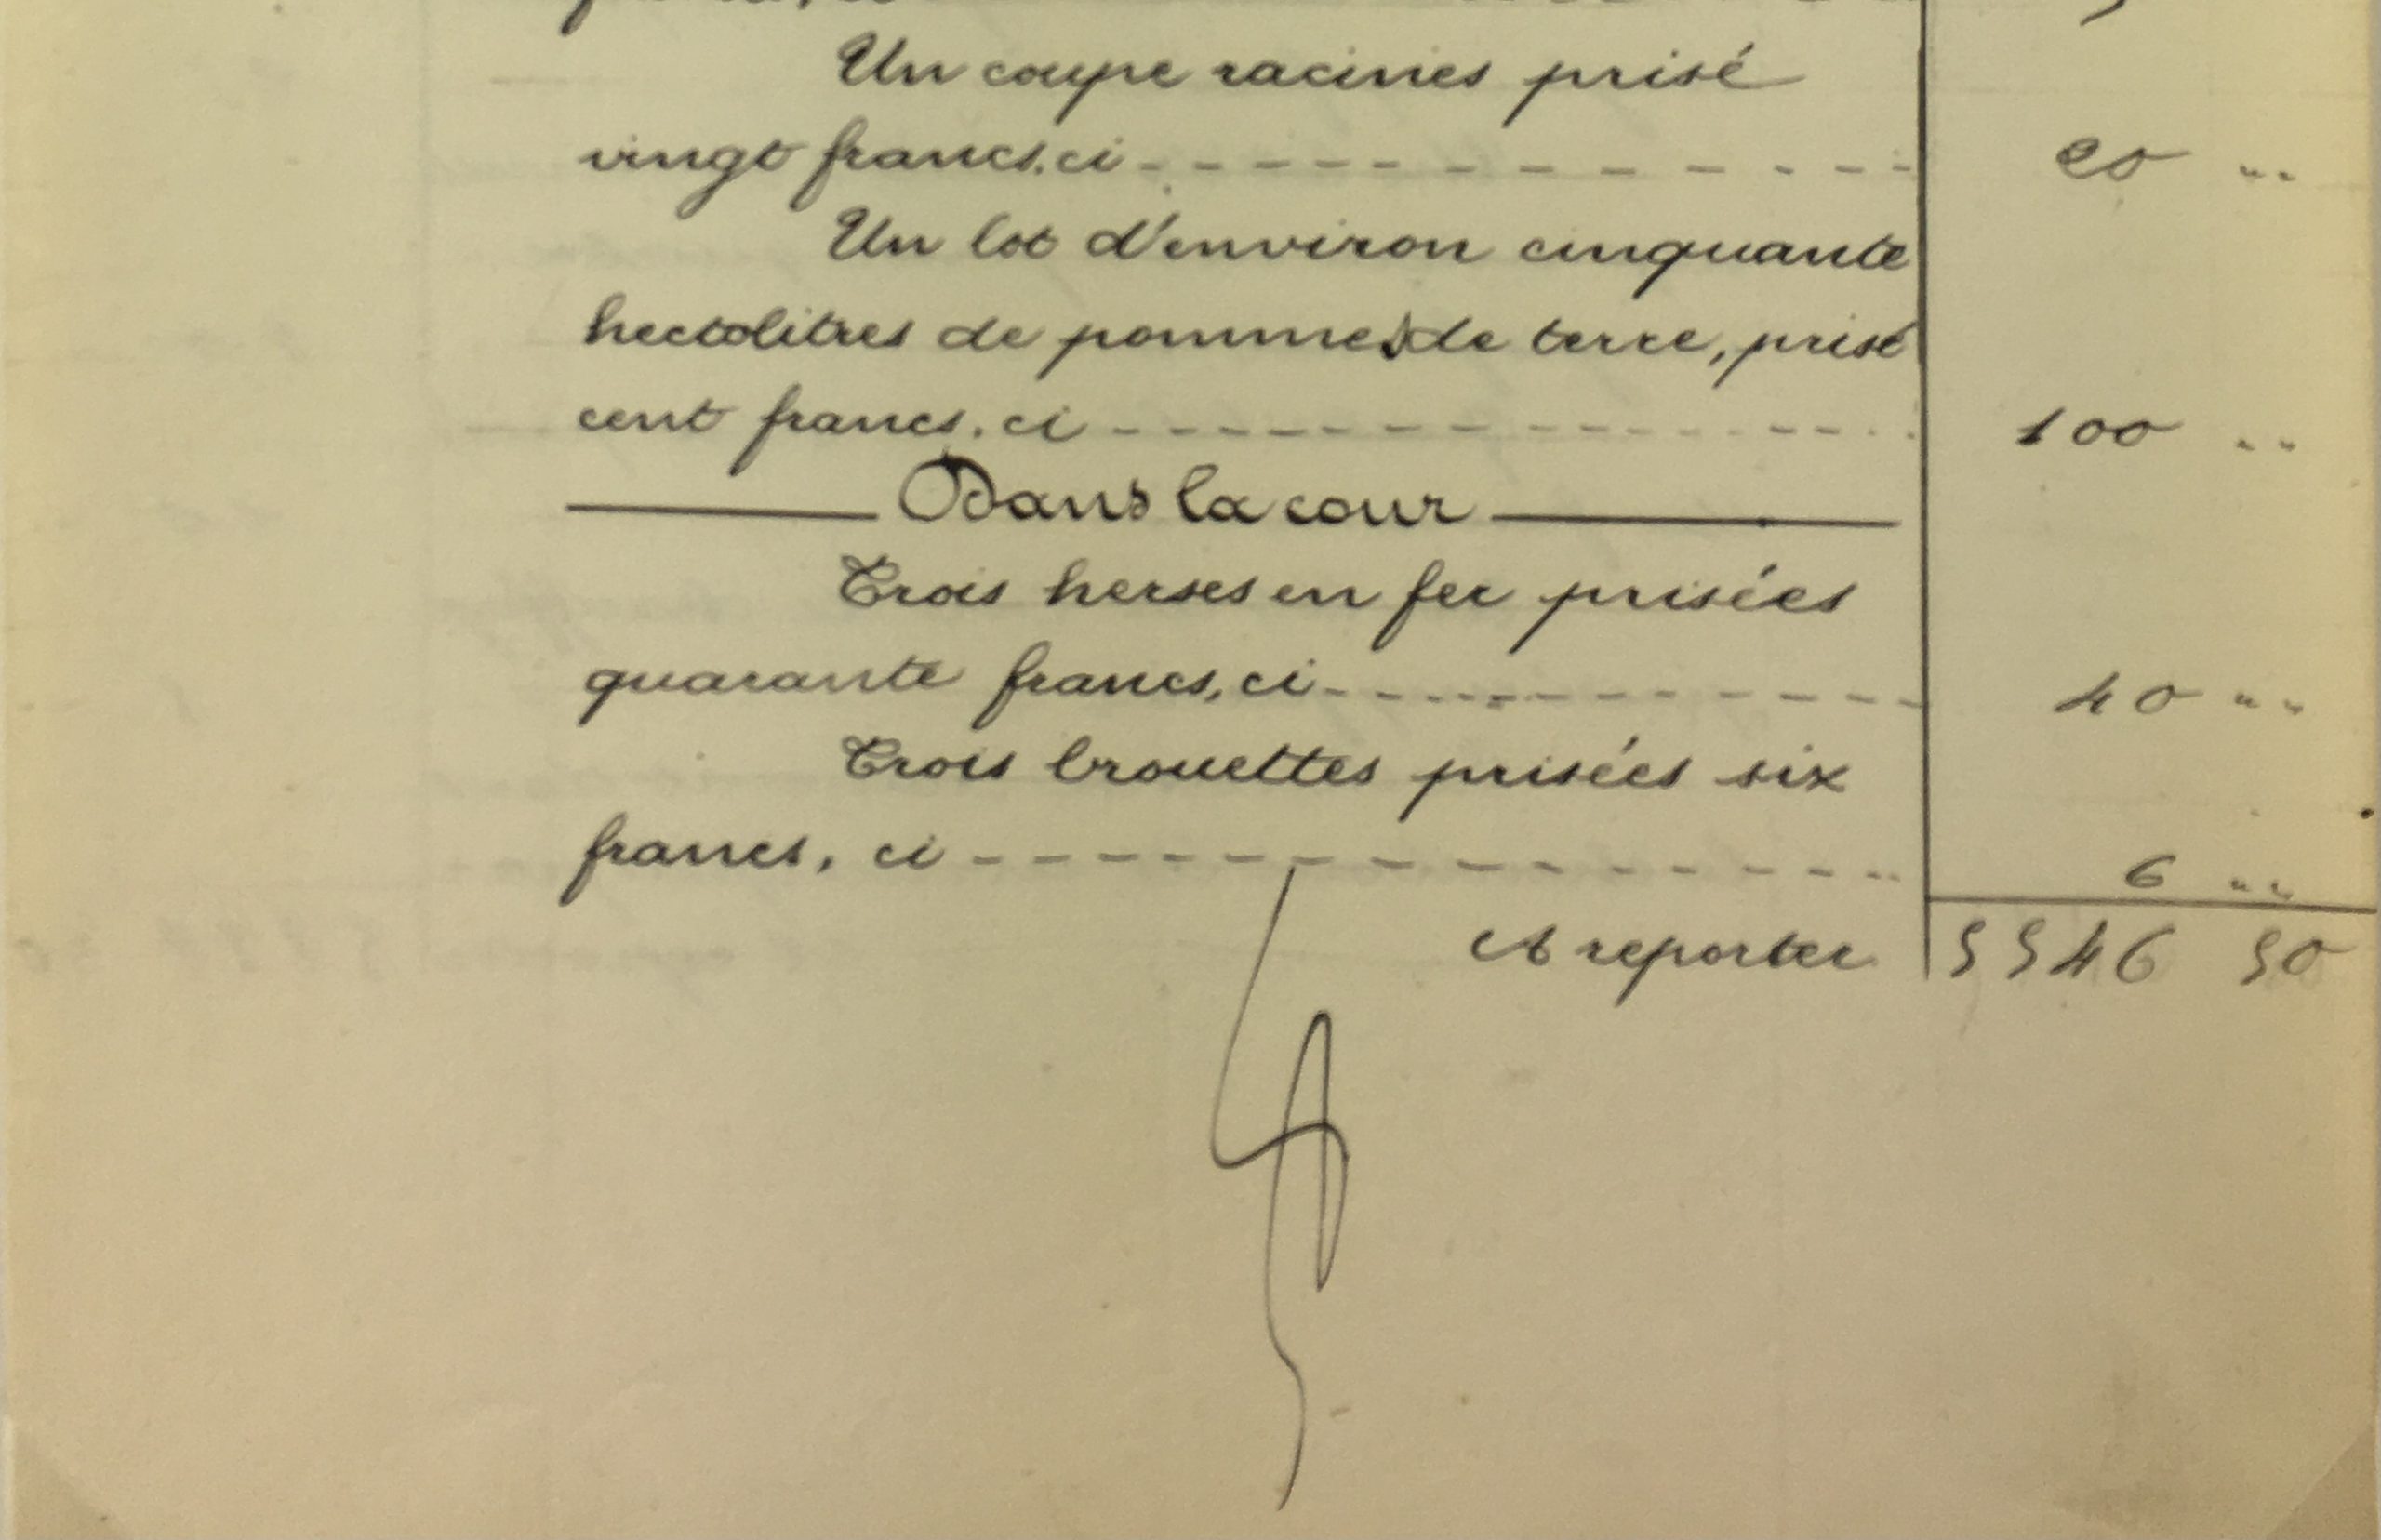 Un coupe racines prisé
vingt francs. ci - - - - - - - - - - 20 "
Un lot d'environ cinquante
hectolitres de pommes de terre, prisé
cent francs. ci - - - - - - - - - - 100 "
Dans la cour
Trois herses en fer prisées
quarante francs, ci - - - - - - - - - - 40 "
Trois brouettes prisées six
francs, ci - - - - - - - - - - 6 "
A reporter 5546 50